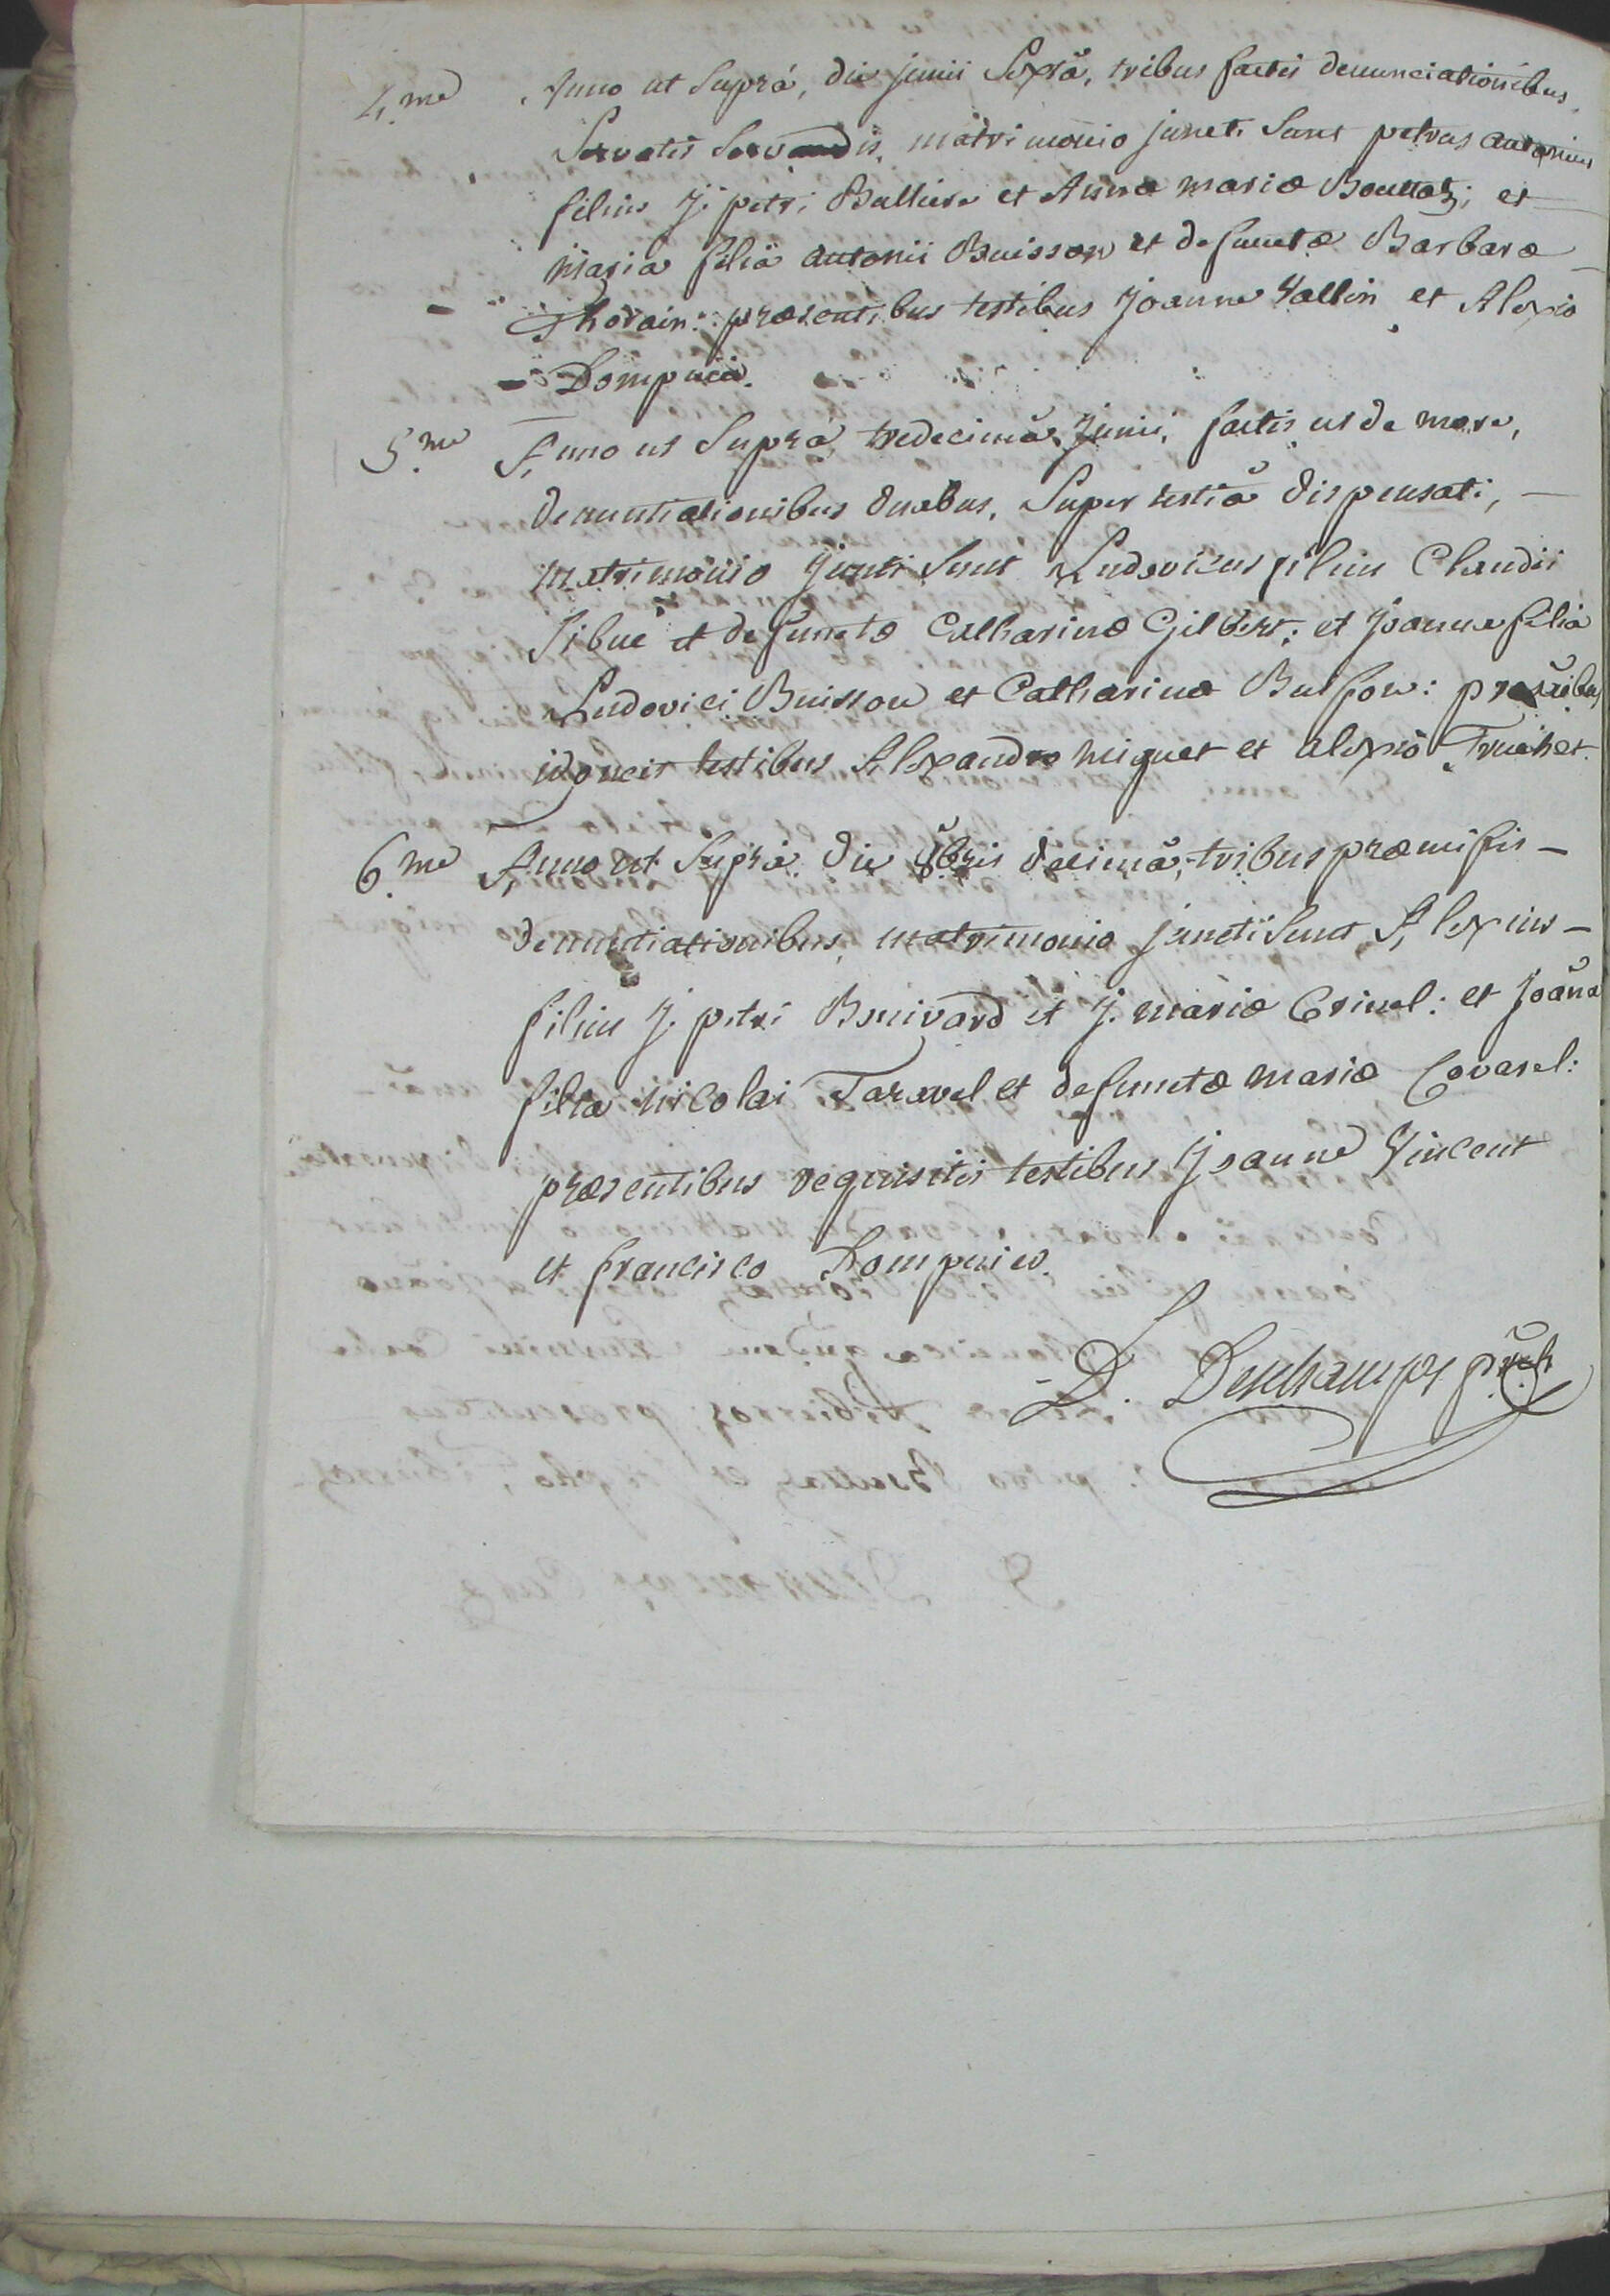 4.me Anno ut Suprà, die junii Sextâ, tribus factis denunciationibus,
Servatis Servandis, matrimonio juncti Sunt petrus antonius
filius J. petri Bulliere et Annæ mariæ Bouttaz; et
maria filia antonii Buisson et defunctæ Barbaræ
Thorain: præsentibus testibus Joanne Vallin et Alexio
Dompnier.
5.me Anno ut Supra, tredecimâ Junii, factis ut de more,
denuntiationibus duabus, Super tertiâ dispensati, —
matrimonio juncti Sunt Ludovicus filius Claudii
Sibué et defunctæ Catharinæ Gilbert; et Joanna filia
Ludovici Buisson et Catharinæ Buisson: præsẽtibus
idoneis testibus Alexandro miguet et alexio Truchet.
6.me Anno ut Suprà. die 8bris decimâ, tribus præmissis —
denuntiationibus, matrimonio juncti Sunt Alexius —
filius J. petri Bouivard et J. mariæ Crinel: et Joãna
filia nicolai Taravel et defunctæ mariæ Covarel:
præsentibus requisitis testibus Joanne Vincent
et francisco Dompnier.
D. Deschamps